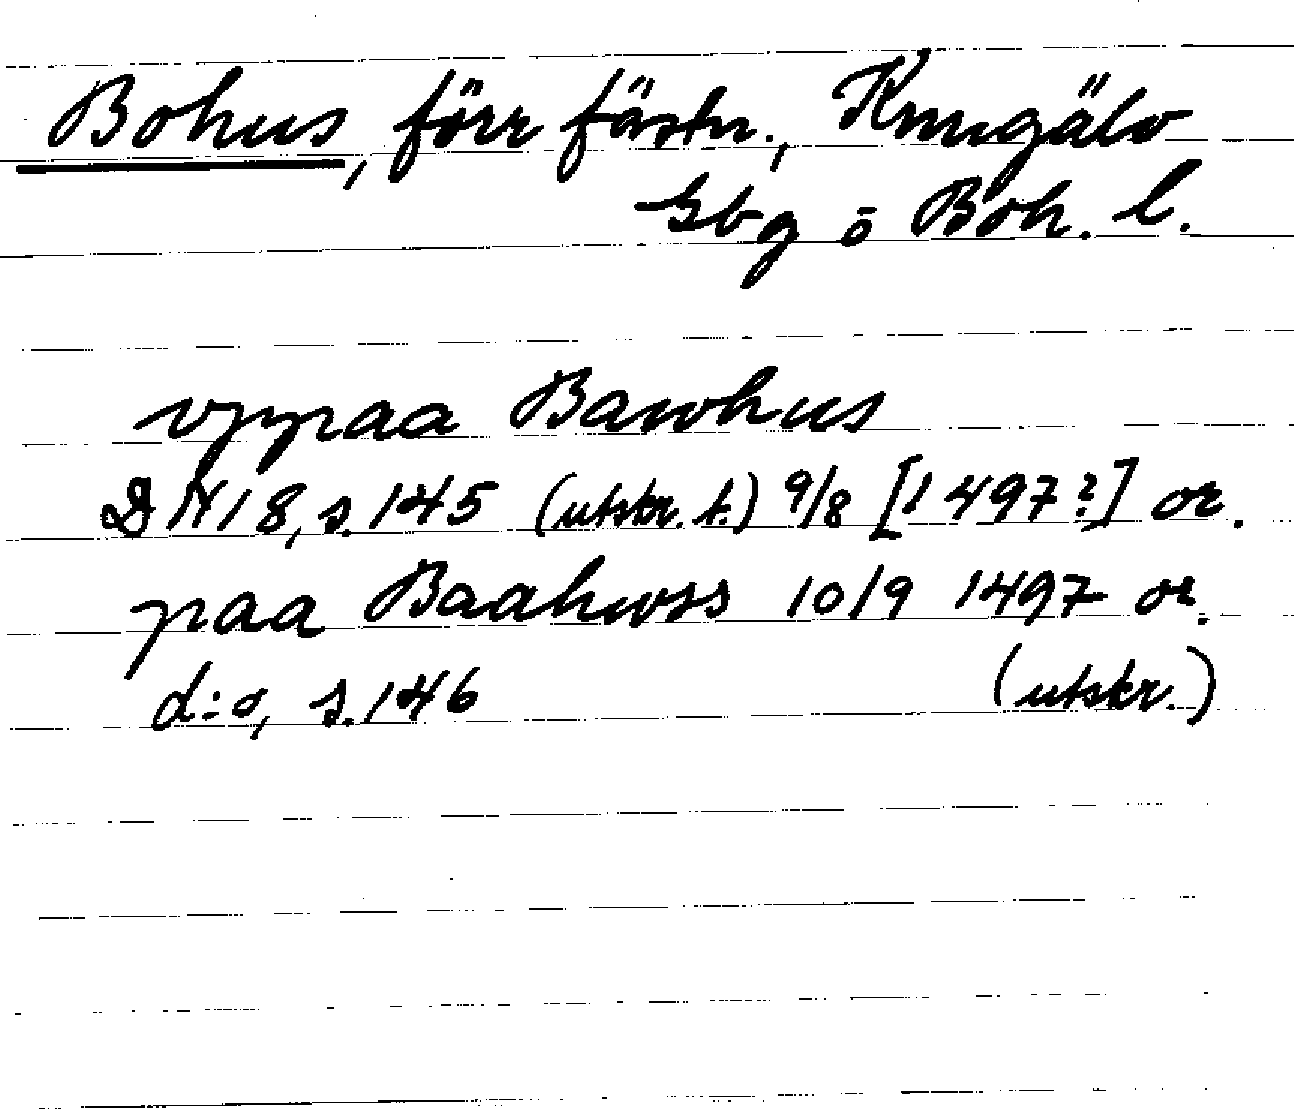 Bohus, förr fästn., Kungälv
Gbg o Boh. l.
vppaa Bawhus
DN 18, s. 145 (utskr. t.) 9/8 [1497?] or.
paa Baahwss 10/9 1497 or.
d:o, s. 146 (utskr.)